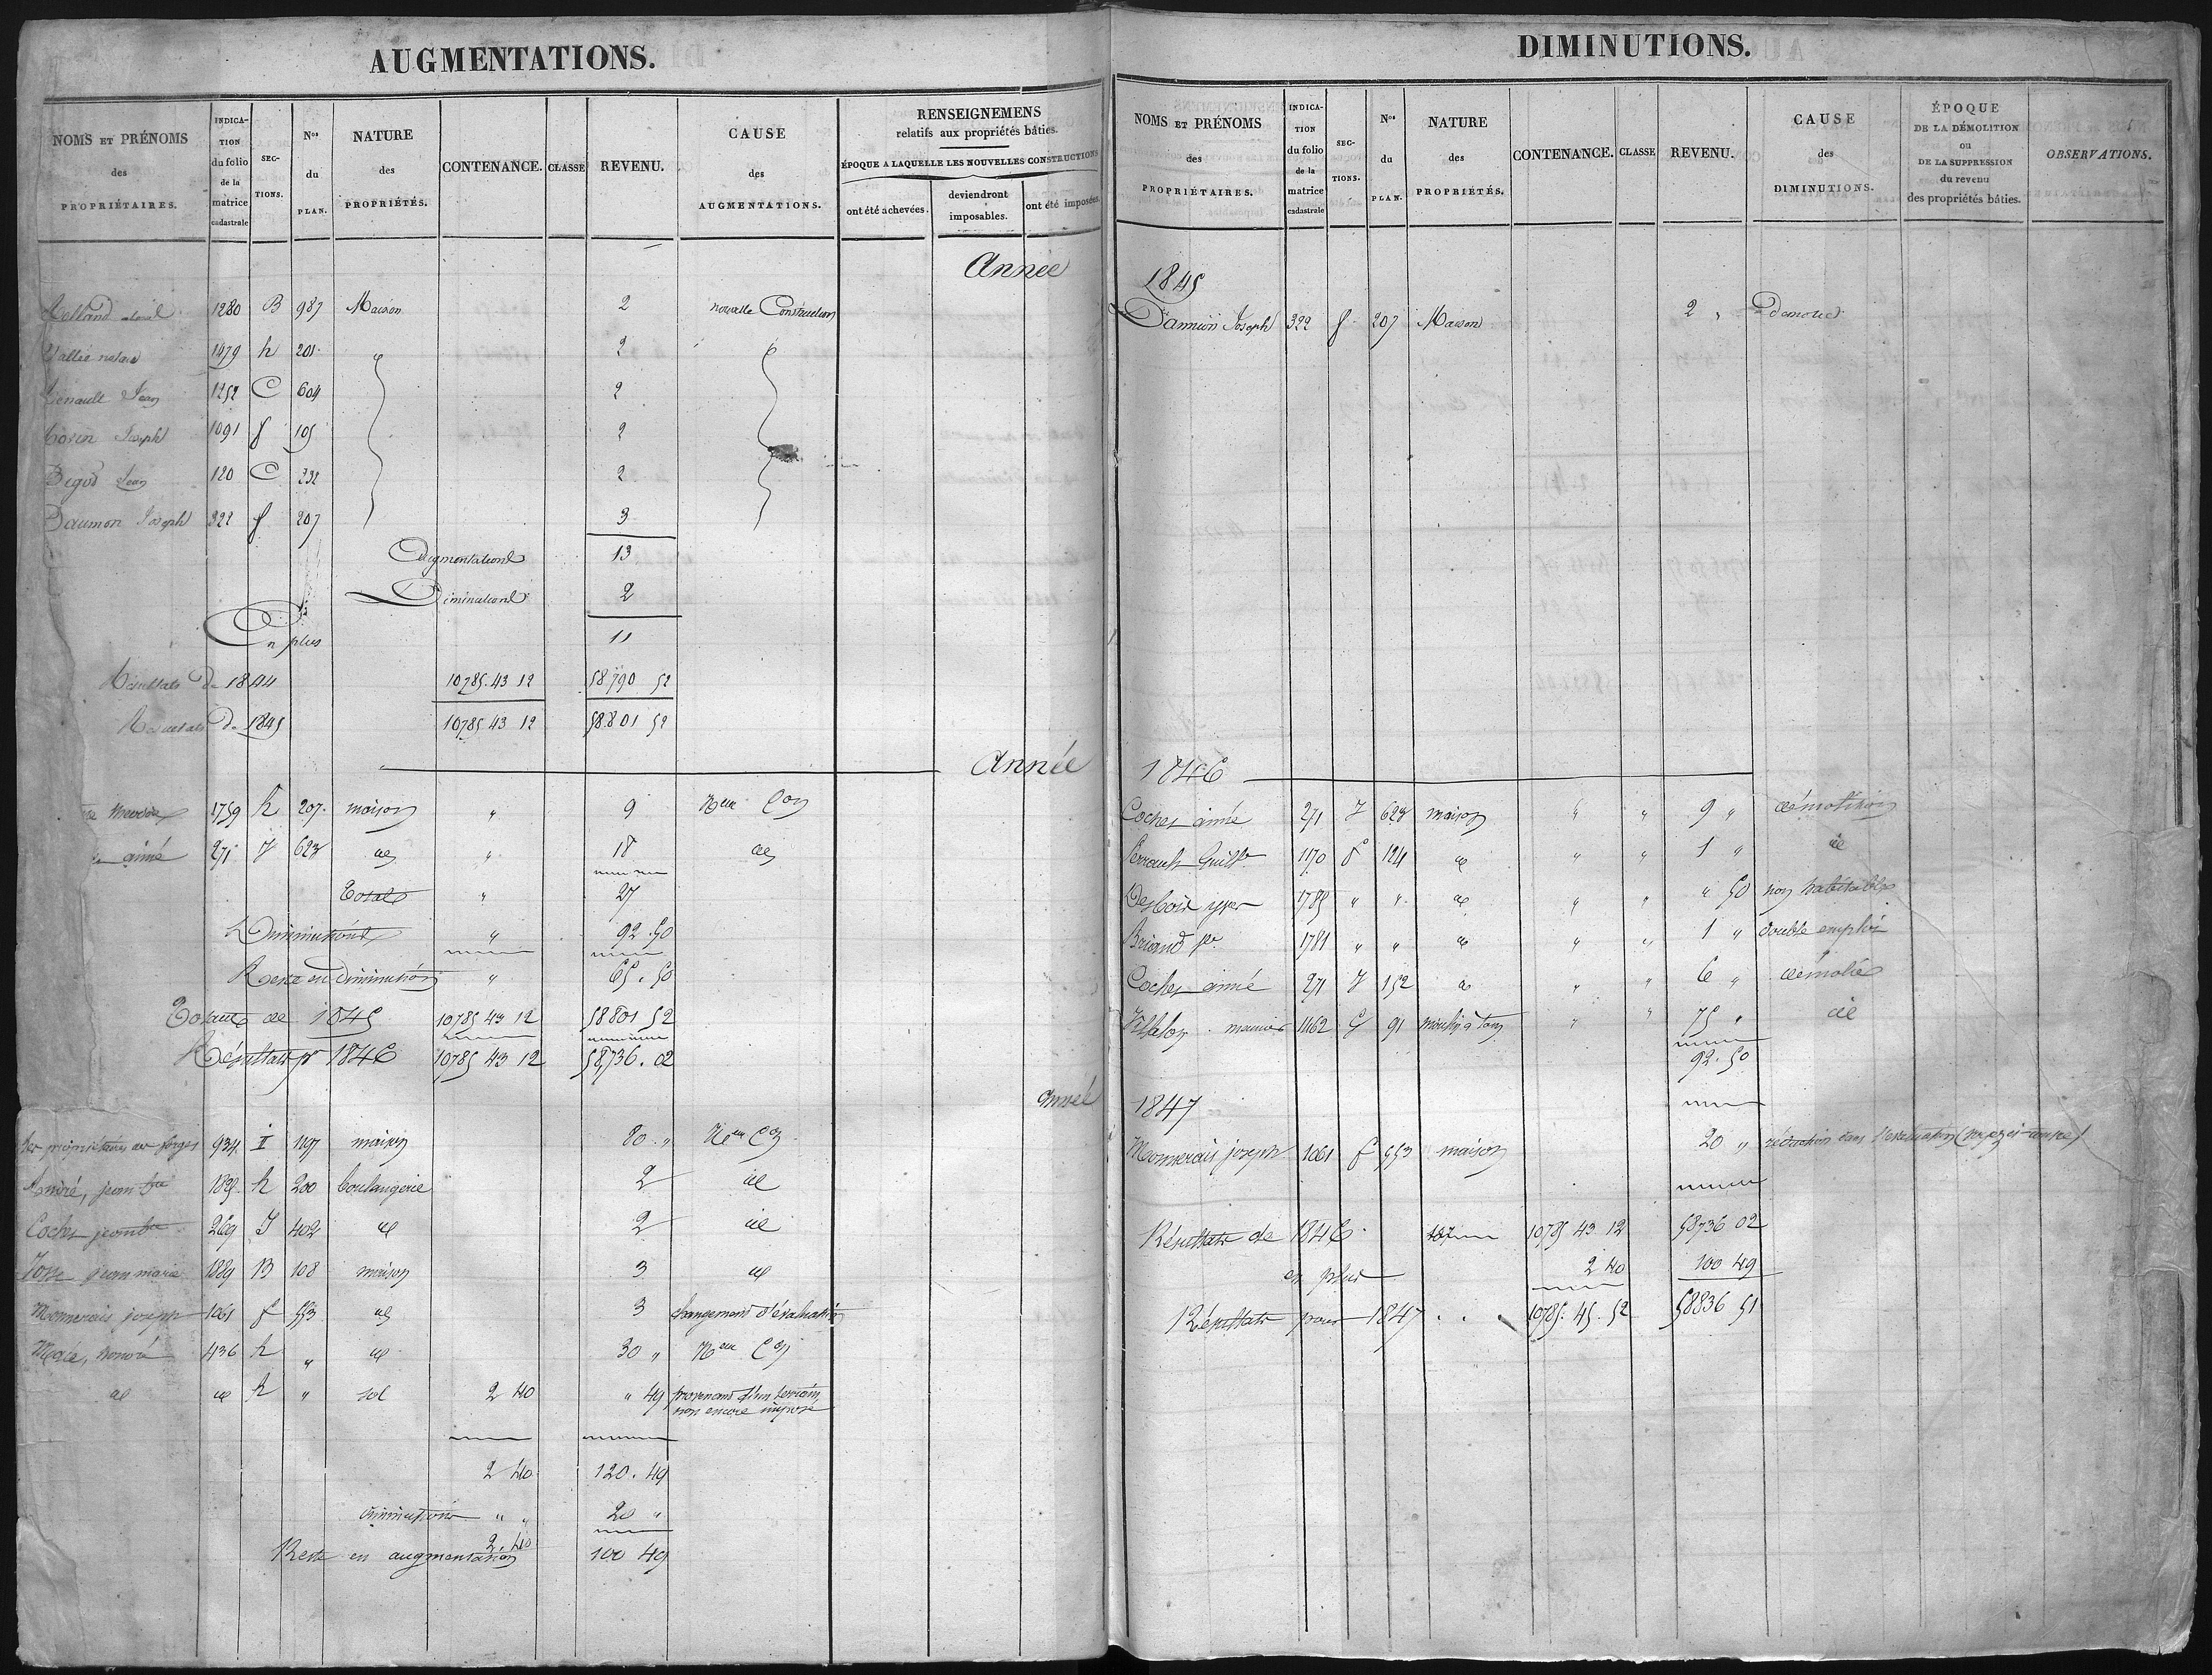 AUGMENTATIONS.
NOMS ET PRÉNOMS des PROPRIÉTAIRES.
INDICA-TION du folio de la matrice cadastrale
SEC-TIONS.
Nos du PLAN.
NATURE des PROPRIÉTÉS.
CONTENANCE.
CLASSE
REVENU.
CAUSE des AUGMENTATIONS.
RENSEIGNEMENS relatifs aux propriétés bâties.
ÉPOQUE A LAQUELLE LES NOUVELLES CONSTRUCTIONS
ont été achevées.
deviendront imposables.
ont été imposées.
Année
1280 B 987 Maison 2 nouvelle Construction
Vallée 1479 h 201 " 2 "
Jean 1252 C 604 2
Joseph 1091 f 105 2
Bigot Jean 120 C 332 2
Daumon Joseph 322 f 207 3
Augmentations 13
Diminutions 2
En plus 11
Résultats de 1844 10785.43 12 58790 52
Résultats de 1845 10785 43 12 58.801 52
Année
1759 h 207 maison " 9 Nelle Con
aimé 271 J 623 id " 18 id
Totals " 27
Diminutions " 92.50
Reste en Diminution " 65.50
Totaux de 1845 10785 43 12 58801 52
Résultats pr 1846 10785 43 12 58,736.02
Année
les propriétaires des forges 934 I 1197 maison 80 " Nelle Con
André, jean bte 1835 h 200 boulangerie 2 id
Coches jean bte 269 J 402 id 2 id
Josse jean marie 1889 B 108 maison 3 id
Monnerais joseph 1061 f 553 id 3 changement d'évaluation
Macé, honoré 436 h " id 30 " Nelle Con
id id h " sol 2 40 " 49 provenant d'un terrain
non encore imposé
2 40 120.49
diminutions " " 20 "
Reste en augmentation 2.40 100 49
DIMINUTIONS.
NOMS ET PRÉNOMS des PROPRIÉTAIRES.
INDICA-TION du folio de la matrice cadastrale
SEC-TIONS.
Nos du PLAN.
NATURE des PROPRIÉTÉS.
CONTENANCE.
CLASSE
REVENU.
CAUSE des DIMINUTIONS.
ÉPOQUE DE LA DÉMOLITION ou DE LA SUPPRESSION du revenu des propriétés bâties.
OBSERVATIONS.
1845
Joseph 322 f 207 Maison 2 "
1846
Coches aimé 271 J 623 maison " " 9 " démolition
Perrault Guille 1170 f 124 id " " 1 " id
1785 " " id " " " 50 non habitable
Briand pre 1781 " " id " " 1 " double emploi
Coches aimé 271 J 152 id " " 6 " démolie
1162 G 91 moulin à tan " " 75 " id
92.50
1847
Monnerais joseph 1061 f 553 maison 20 " réduction dans l'évaluation
Résultats de 1846 10785 43 12 58736 02
en plus 2 40 100 49
Résultats pour 1847 . . 10785.45.52 58836 51